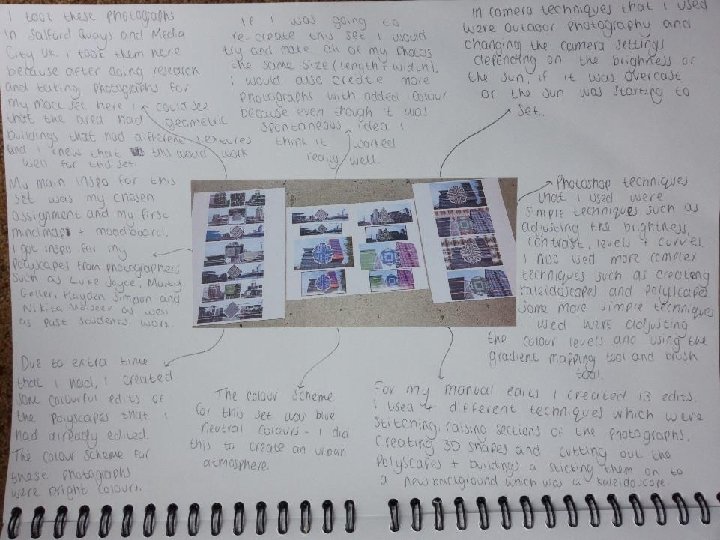 I took these photographs
in Salford Quays and Media
City UK. I took them here
because after doing research
and taking photographs for
my mock set here i could see
that the area had geometric
buildings that had different textures
and I knew that this would work
well for this set.
If I was going to
re-create this set I would
try and make all of my photos
the same size (length + width).
I would also create more
photographs with added colour
because even though it was
spontaneous idea I
think it worked
really well.
In camera techniques that I used
were outdoor photography and
changing the camera settings
depending on the brightness of
the sun, if it was overcast
or the sun was starting to
set.
My main inspo for this
set was my chosen
assignment and my first
mindmap + moodboard.
I got inspo for my
polyscapes from photographers
such as Luke Joyce,
Hayden Simpson and
Nikita as well
as past students work.
Photoshop techniques
that I used were
simple techniques such as
adjusting the brightness,
contrast, levels + curves.
I also used more complex
techniques such as creating
kaleidoscopes and polyscapes
some more simple techniques
used were adjusting
the colour levels and using the
gradient mapping tool and brush
tool.
Due to extra time
that I had, I created
some colourful edits of
the polyscapes that I
had already edited.
The colour scheme for
these photographs
were bright colours.
The colour scheme
for this set was blue
neutral colours - I did
this to create an urban
atmosphere.
For my manual edits I created 13 edits.
I used 4 different techniques which were
stitching, raising sections of the photographs,
creating 3D shapes and cutting out the
polyscapes + buildings + sticking them on to
a new background which was a kaleidoscope